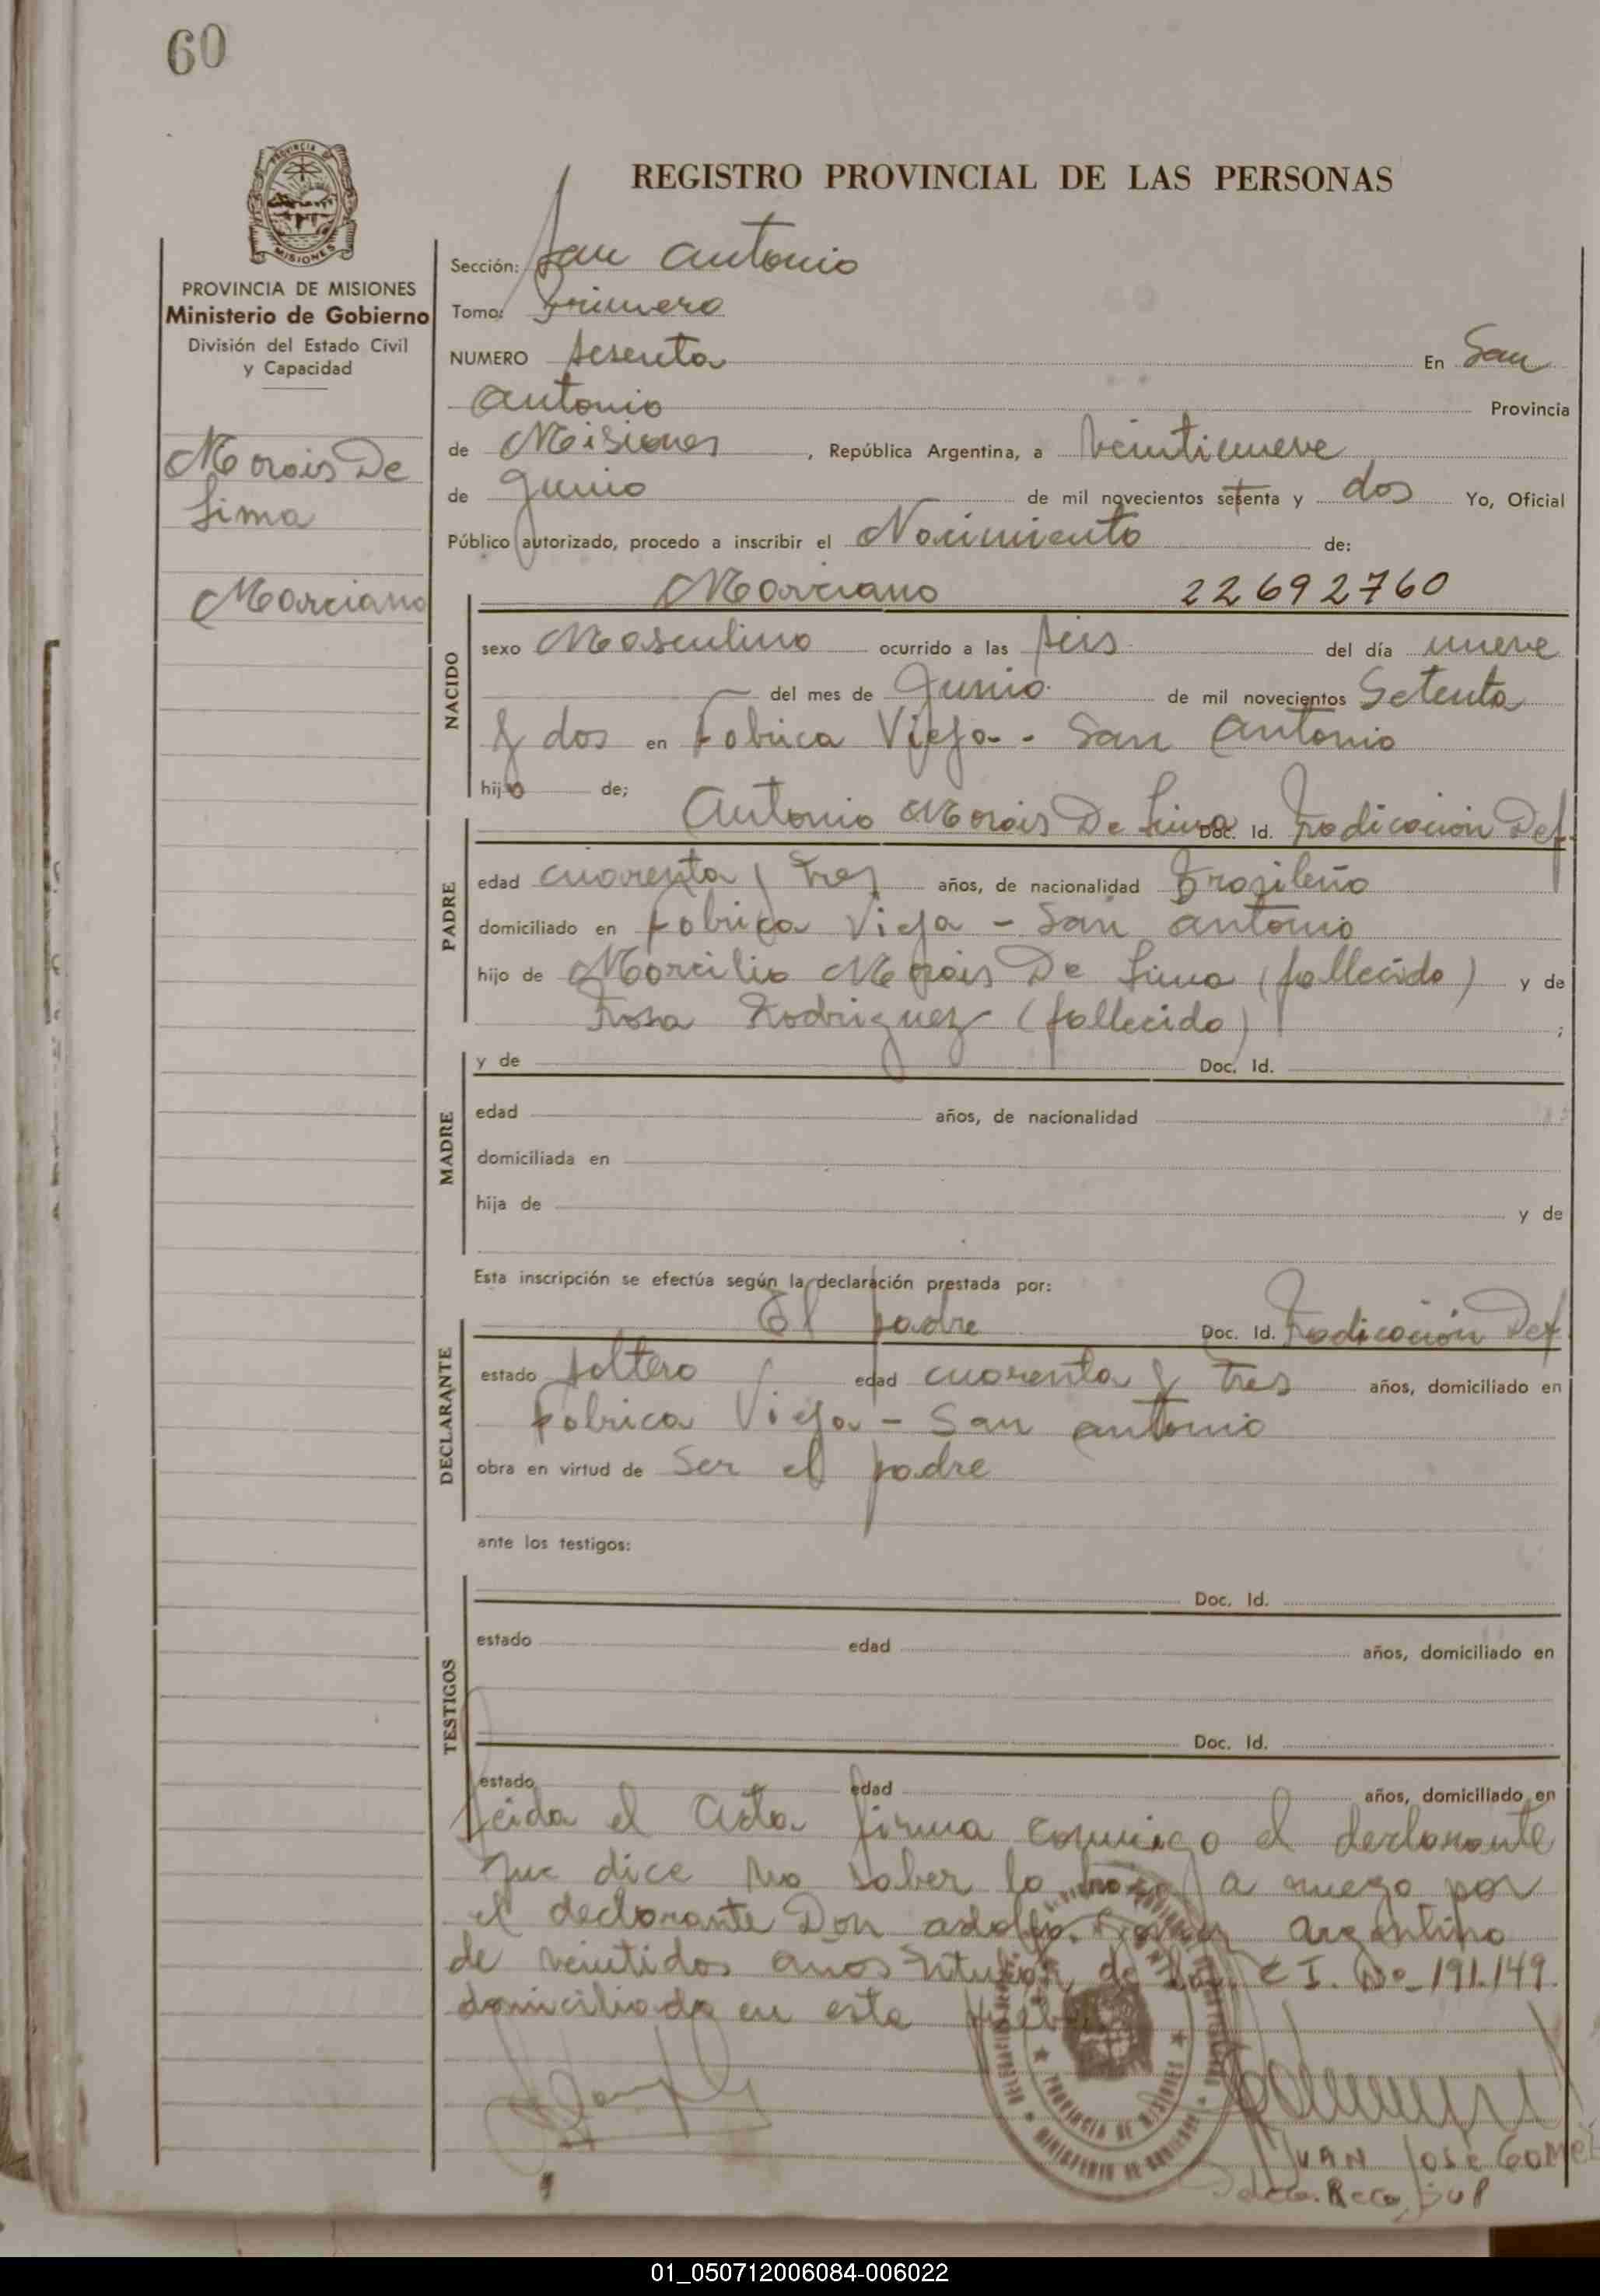 60
REGISTRO PROVINCIAL DE LAS PERSONAS
MISIONES
PROVINCIA DE MISIONES
Ministerio de Gobierno
División del Estado Civil
y Capacidad
Morais De
Lima
Marciano
Sección: San Antonio
Tomo: Primero
NUMERO Sesenta En San
Antonio Provincia
de Misiones, República Argentina, a veintinueve
de Junio de mil novecientos setenta y dos Yo, Oficial
Público autorizado, procedo a inscribir el Nacimiento de:
Marciano 22692760
NACIDO
sexo Masculino ocurrido a las seis del día nueve
del mes de Junio de mil novecientos Setenta
y dos en Fabrica Vieja - San Antonio
hijo de;
PADRE
Antonio Morais De Lima Doc. Id. Radicación Def.
edad cuarenta y tres años, de nacionalidad Brasileño
domiciliado en Fabrica Vieja - San Antonio
hijo de Marcilio Morais De Lima (fallecido) y de
Rosa Rodriguez (fallecido) ;
MADRE
y de Doc. Id.
edad años, de nacionalidad
domiciliada en
hija de y de
Esta inscripción se efectúa según la declaración prestada por:
DECLARANTE
El padre Doc. Id. Radicación Def.
estado soltero edad cuarenta y tres años, domiciliado en
Fabrica Vieja - San Antonio
obra en virtud de Ser el padre
ante los testigos:
TESTIGOS
Doc. Id.
estado edad años, domiciliado en
Doc. Id.
estado edad años, domiciliado en
Leida el Acta firma conmigo el declarante
que dice no saber lo a ruego por
el declarante Don adolfo argentino
de veintidos años titular de C I. No 191.149.
domiciliado en este
PROVINCIA DE MISIONES
MINISTERIO DE GOBIERNO
JUAN JOSE GOMEZ
01_050712006084-006022